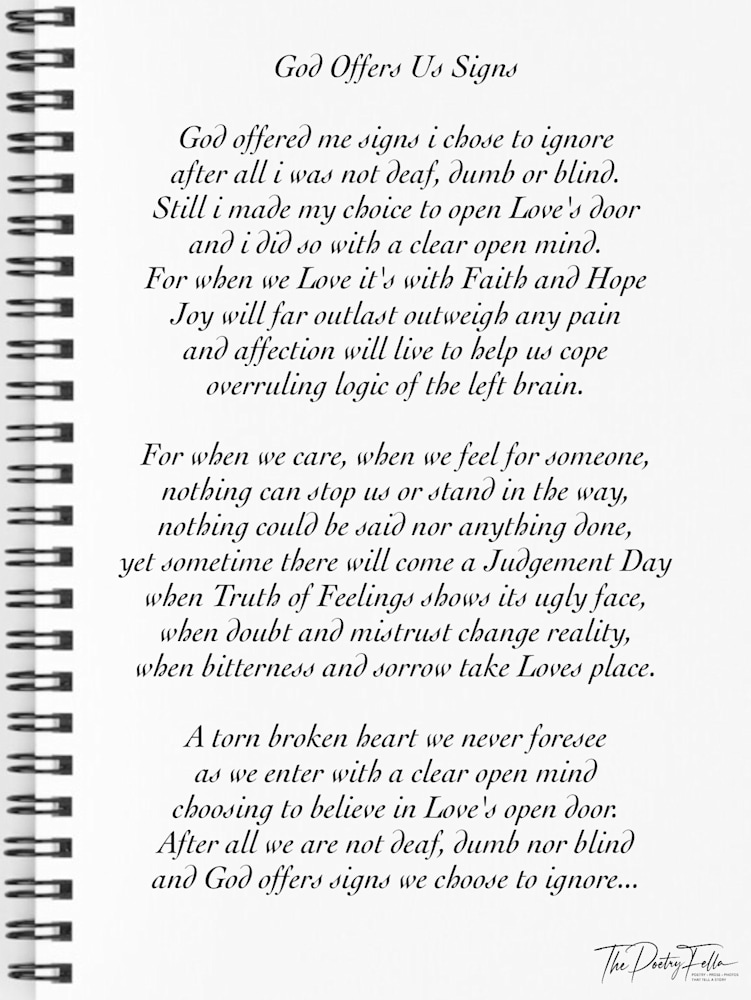 God Offers Us Signs
God offered me signs i chose to ignore
after all i was not deaf, dumb or blind.
Still i made my choice to open Love's door
and i did so with a clear open mind.
For when we Love it's with Faith and Hope
Joy will far outlast outweigh any pain
and affection will live to help us cope
overruling logic of the left brain.
For when we care, when we feel for someone,
nothing can stop us or stand in the way,
nothing could be said nor anything done,
yet sometime there will come a Judgement Day
when Truth of Feelings shows its ugly face,
when doubt and mistrust change reality,
when bitterness and sorrow take Loves place.
A torn broken heart we never foresee
as we enter with a clear open mind
choosing to believe in Love's open door.
After all we are not deaf, dumb nor blind
and God offers signs we choose to ignore...
The Poetry Fella
POETRY • PROSE • PHOTOS
THAT TELL A STORY